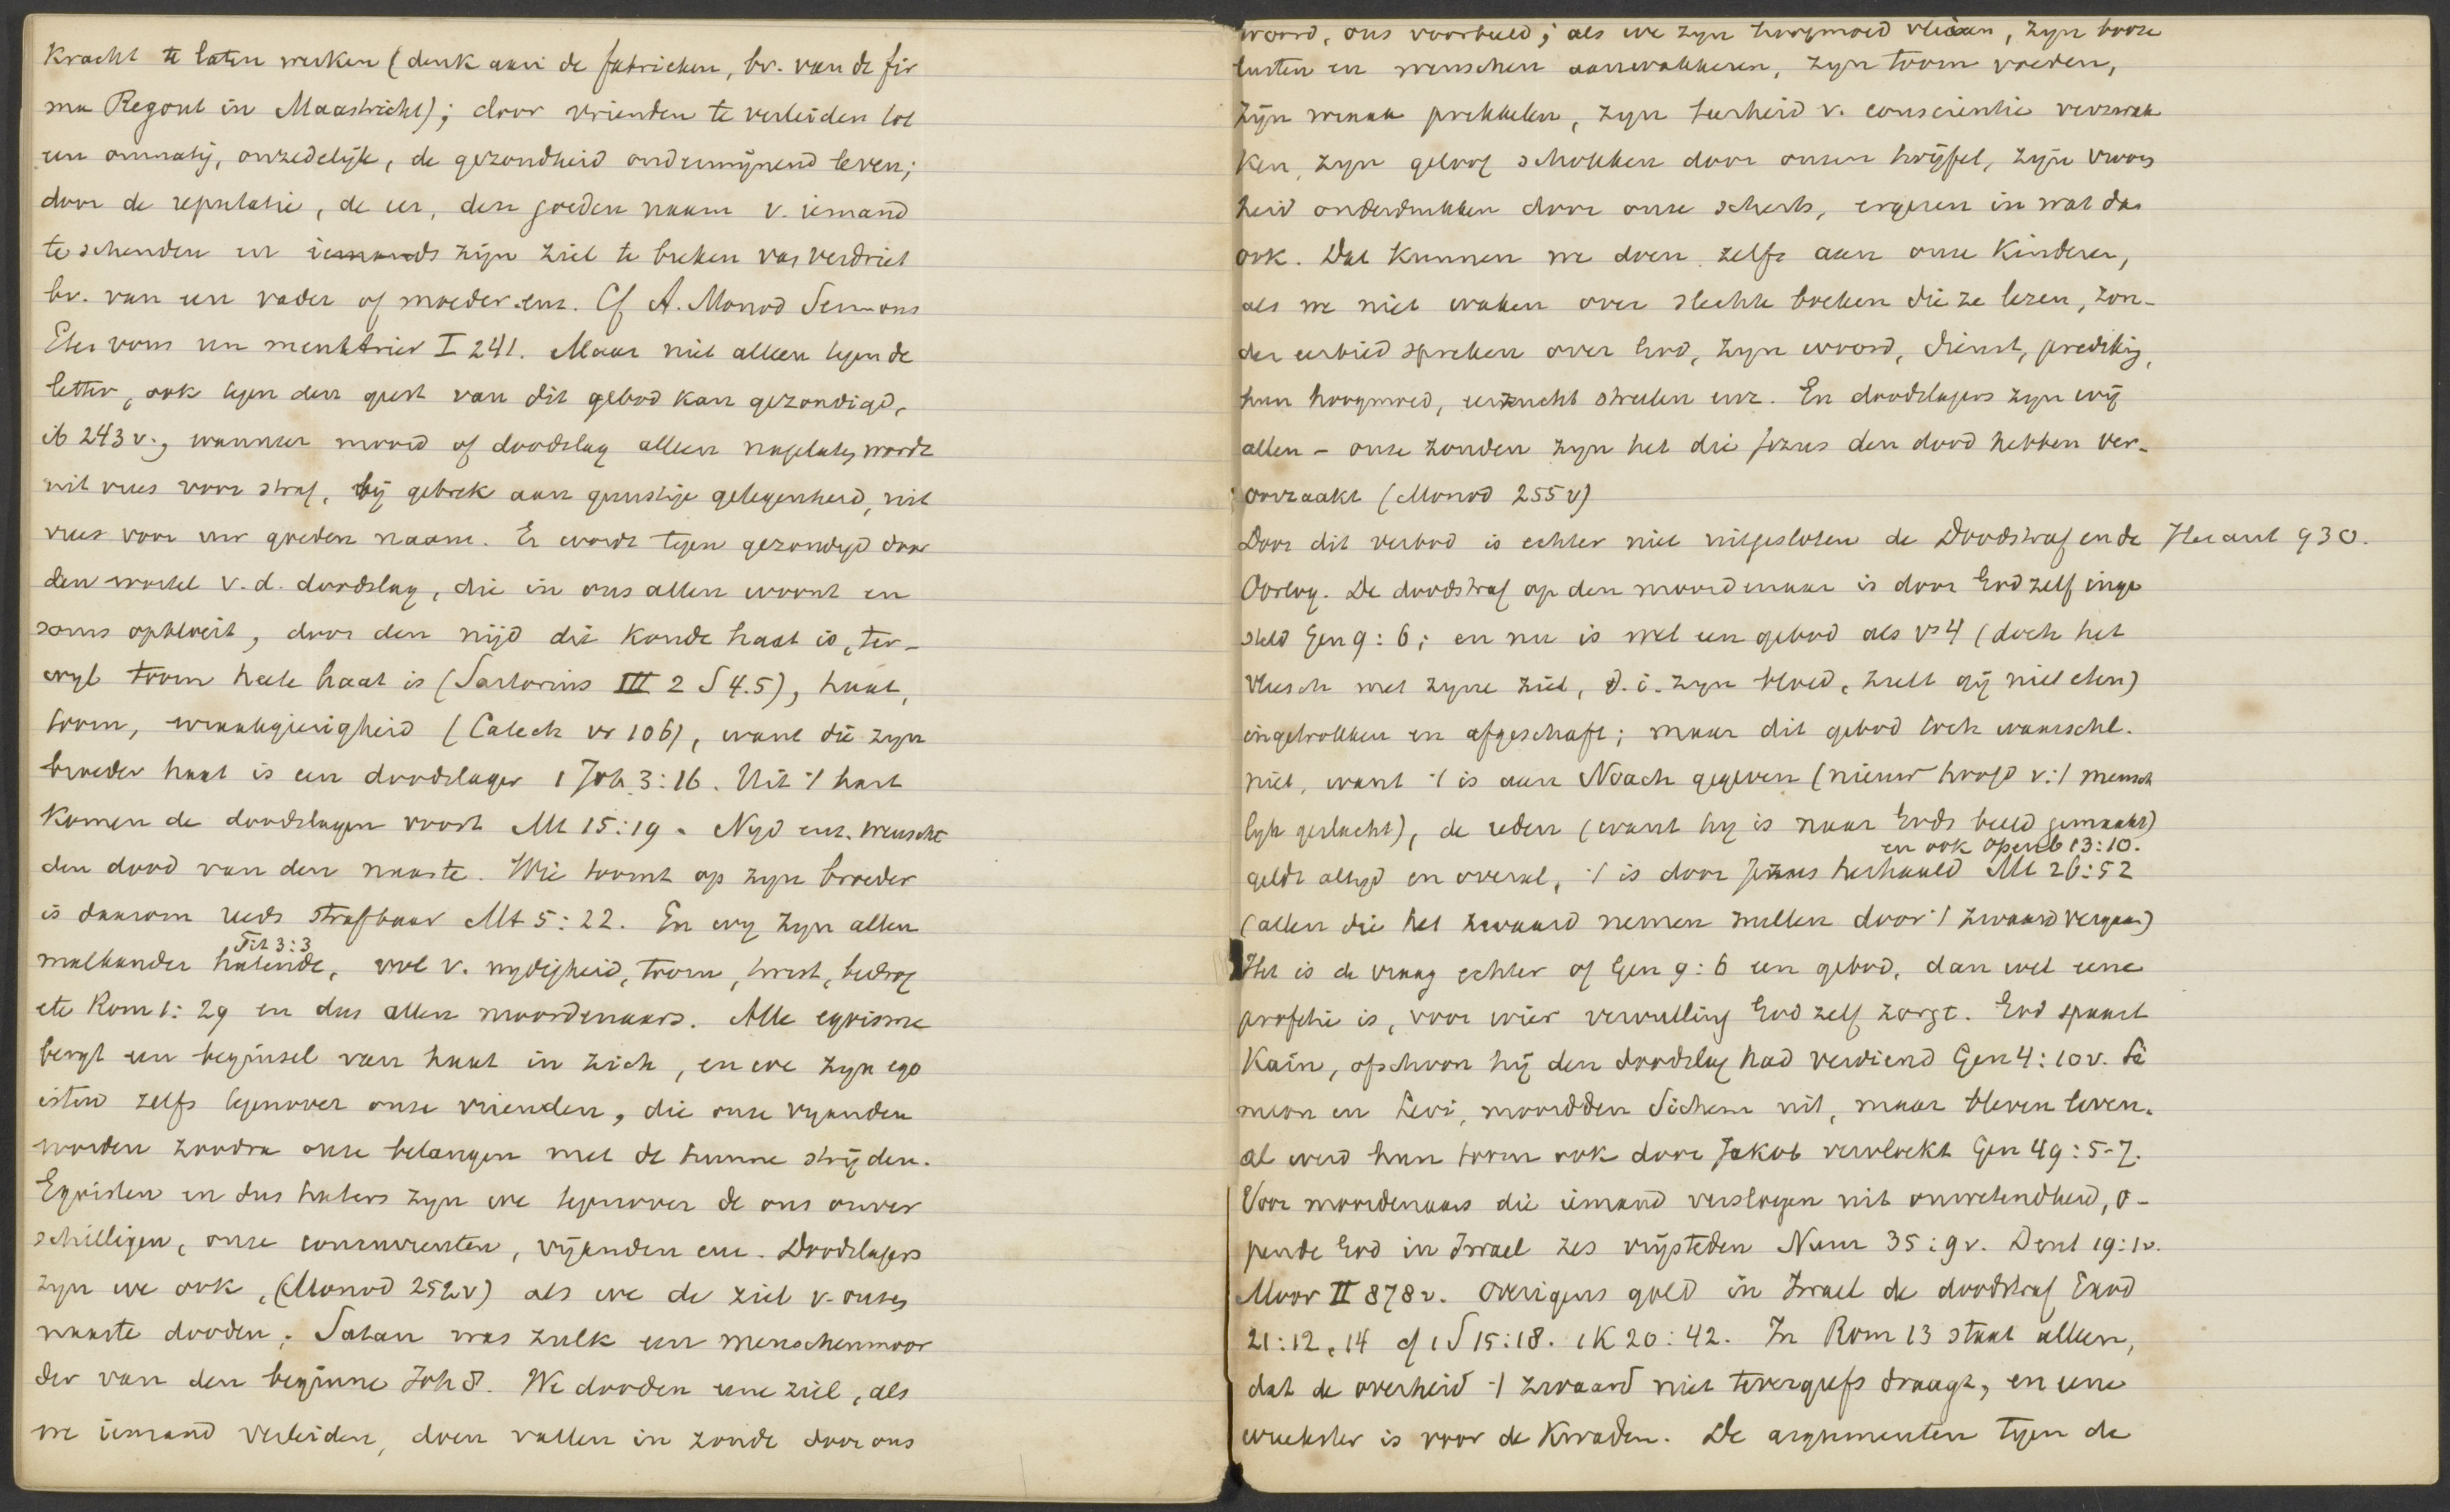 kracht te laten werken (denk aan de fabrieken, bv. van de fir
ma Regout in Maastricht); door vrienden te verleiden tot
een onmatig, onzedelijk, de gezondheid ondermijnend leven;
door de reputatie, de eer, den goeden naam v. iemand
te schenden en iemands zijn ziel te breken van verdriet
bv. van een vader of moeder enz. Cf A. Monod Sermons
Etes vous un meurtrier I 241. Maar niet alleen tegen de
letter, ook tegen den geest van dit gebod kan gezondigd,
ib 243 v., wanneer moord of doodslag alleen nagelaten wordt
uit vrees voor straf, bij gebrek aan gunstige gelegenheid, uit
vrees voor uw goeden naam. Er wordt tegen gezondigd door
den wortel v. d. doodslag, die in ons allen woont en
soms opbloeit, door den nijd die koude haat is, ter-
wyl toorn heete haat is (Sartorius III 2 S 4.5), haat,
toorn, wraakgierigheid (Catech vr 106), want die zyn
broeder haat is een doodslager 1 Joh 3:16. Uit 't hart
komen de doodslagen voort Mt 15:19. Nyd enz. wenscht
den dood van den naaste. Wie toornt op zyn broeder
is daarom reeds strafbaar Mt 5:22. En wy zyn allen
Tit 3:3
malkander hatende, vol v. nydigheid, toorn, twist, bedrog
etc Rom 1:29 en dus allen moordenaars. Alle egoisme
bergt een beginsel van haat in zich, en we zyn ego
isten zelfs tegenover onze vrienden, die onze vyanden
worden zoodra onze belangen met de hunne strijden.
Egoisten en dus haters zyn we tegenover de ons onver
schilligen, onze concurrenten, vijanden enz. Doodslagers
zyn we ook, (Monod 252v) als we de ziel v. onzen
naaste dooden. Satan was zulk een menschenmoor
der van den beginne Joh 8. We dooden eene ziel, als
we iemand verleiden, doen vallen in zonde door ons
woord, ons voorbeeld; als we zyn hoogmoed vleien, zyn booze
lusten en wenschen aanwakkeren, zyn toorn voeden,
zijn wraak prikkelen, zyn teerheid v. conscientie verzwak
ken, zyn geloof schokken door onzen twijfel, zijn vroom
heid onderdrukken door onze scherts, ergeren in wat dan
ook. Dat kunnen we doen zelfs aan onze kinderen,
als we niet waken over slechte boeken die ze lezen, zon-
der eerbied spreken over God, zyn woord, dienst, prediking,
hun hoogmoed, eerzucht streelen enz. En doodslagers zyn wij
allen – onze zonden zyn het die Jezus den dood hebben ver-
oorzaakt (Monod 255v)
Door dit verbod is echter niet uitgesloten de Doodstraf en de Heraut 930.
Oorlog. De doodstraf op den moordenaar is door God zelf inge
steld Gen 9:6; en nu is wel een gebod als vs 4 (doch het
vleesch met zyne ziel, d.i. zyn bloed, zult gij niet eten)
ingetrokken en afgeschaft; maar dit gebod toch waarschl.
niet, want 't is aan Noach gegeven (nieuw hoofd v. 't mensch
lyk geslacht), de reden (want hy is naar Gods beeld gemaakt)
en ook Openb 13:10.
geldt altyd en overal, 't is door Jezus herhaald Mt 26:52
(allen die het zwaard nemen zullen door 't zwaard vergaan)
Het is de vraag echter of Gen 9:6 een gebod, dan wel eene
profetie is, voor wier vervulling God zelf zorgt. God spaart
Kaïn, ofschoon hij den doodslag had verdiend Gen 4:10v. Si
meon en Levi, moordden Sichem uit, maar bleven leven.
al werd hun toorn ook door Jakob vervloekt Gen 49:5-7.
Voor moordenaars die iemand versloegen uit onwetendheid, o-
pende God in Israel zes vrijsteden Num 35:9v. Deut 19:1v.
Moor II 878v. Overigens gold in Israel de doodstraf Exod
21:12, 14 cf 1 S 15:18. 1 K 20:42. In Rom 13 staat alleen,
dat de overheid 't zwaard niet tevergeefs draagt, en eene
wreekster is voor de kwaden. De argumenten tegen de